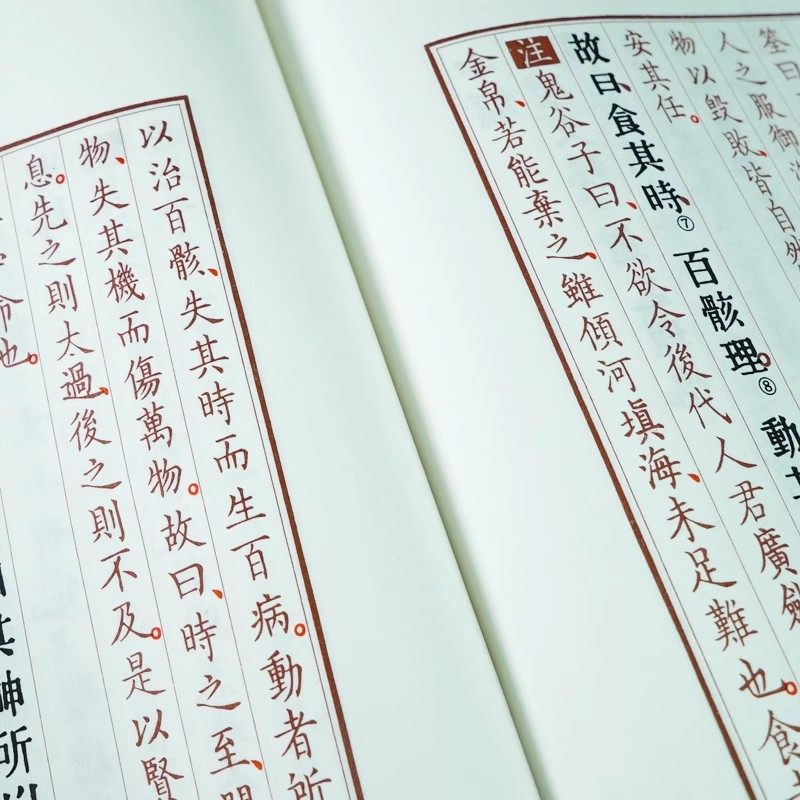 筌曰
人之服御
物以毀敗、皆自然
安其任。
故曰、食其時⑦百骸理。⑧動
注鬼谷子曰、不欲令後代人君廣斂
金帛、若能棄之、雖傾河填海、未足難也。食
以治百骸、失其時而生百病。動者所
物、失其機而傷萬物。故曰、時之至、間
息。先之則太過、後之則不及。是以賢
命也。
其神所